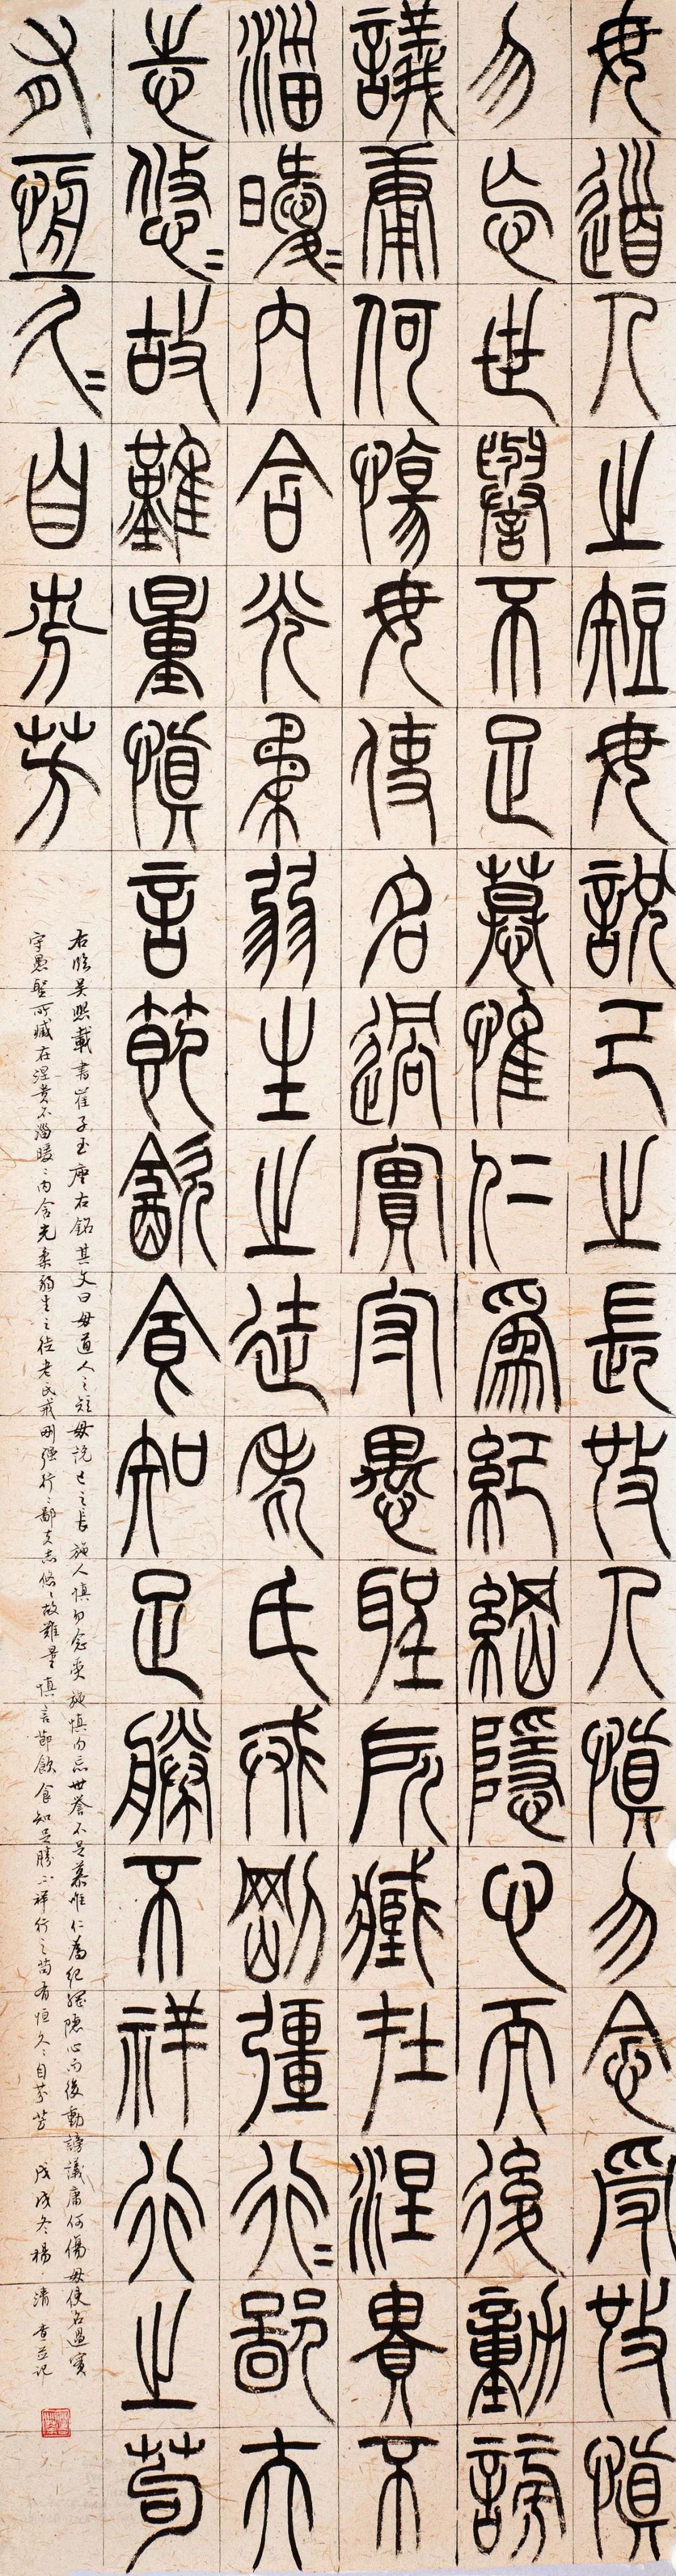 毋道人之短毋說己之長施人慎勿念受施慎
勿忘世譽不足慕惟仁為紀綱隱心而後動謗
議庸何傷毋使名過實守愚聖所臧在涅貴不
淄曖〻內含光柔弱生之徒老氏戒剛彊行〻鄙夫
志悠〻故難量慎言節飲食知足勝不祥行之苟
有恆久〻自芬芳
右臨吳熙載書崔子玉座右銘其文曰毋道人之短毋說己之長施人慎勿念受施慎勿忘世譽不足慕惟仁為紀綱隱心而後動謗議庸何傷毋使名過實
守愚聖所臧在涅貴不淄曖〻內含光柔弱生之徒老氏戒剛強行〻鄙夫志悠〻故難量慎言節飲食知足勝不祥行之苟有恒久〻自芬芳 戊戌冬楊清並記